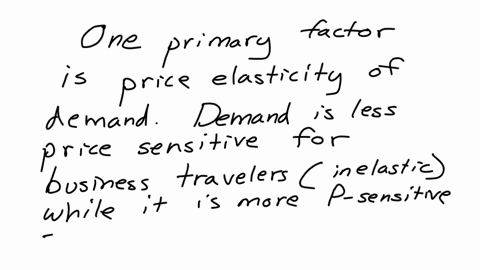 One primary factor
is price elasticity of
demand. Demand is less
price sensitive for
business travelers (inelastic)
while it is more P-sensitive